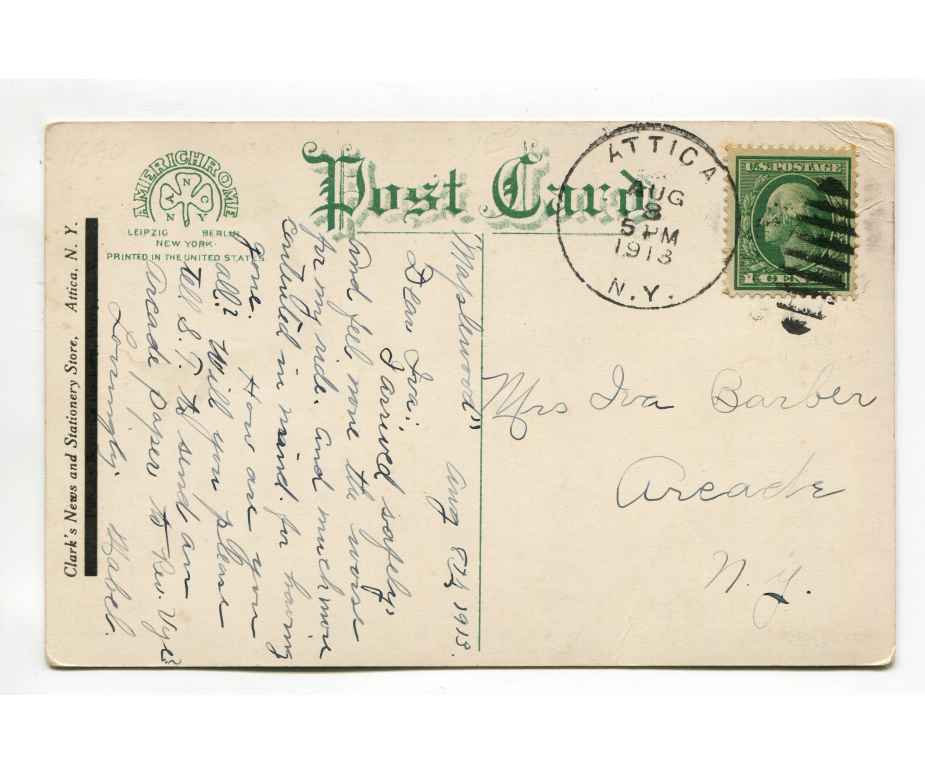 AMERICHROME
A N C O
N Y
LEIPZIG BERLIN
NEW YORK
PRINTED IN THE UNITED STATES
Post Card
ATTICA
AUG
8
5 PM
1913
N.Y.
U.S. POSTAGE
1 CENT
Clark's News and Stationery Store, Attica, N. Y.
"Maplewood" Aug 8th, 1913.
Dear Iva:
I arrived safely,
and feel none the worse
for my ride. and much more
contented in mind. for having
gone. How are you
all? Will you please
tell S. T. to send an
Arcade paper, to Rev.
Lovingly Mabel.
Mrs Iva Barber
Arcade
N.Y.